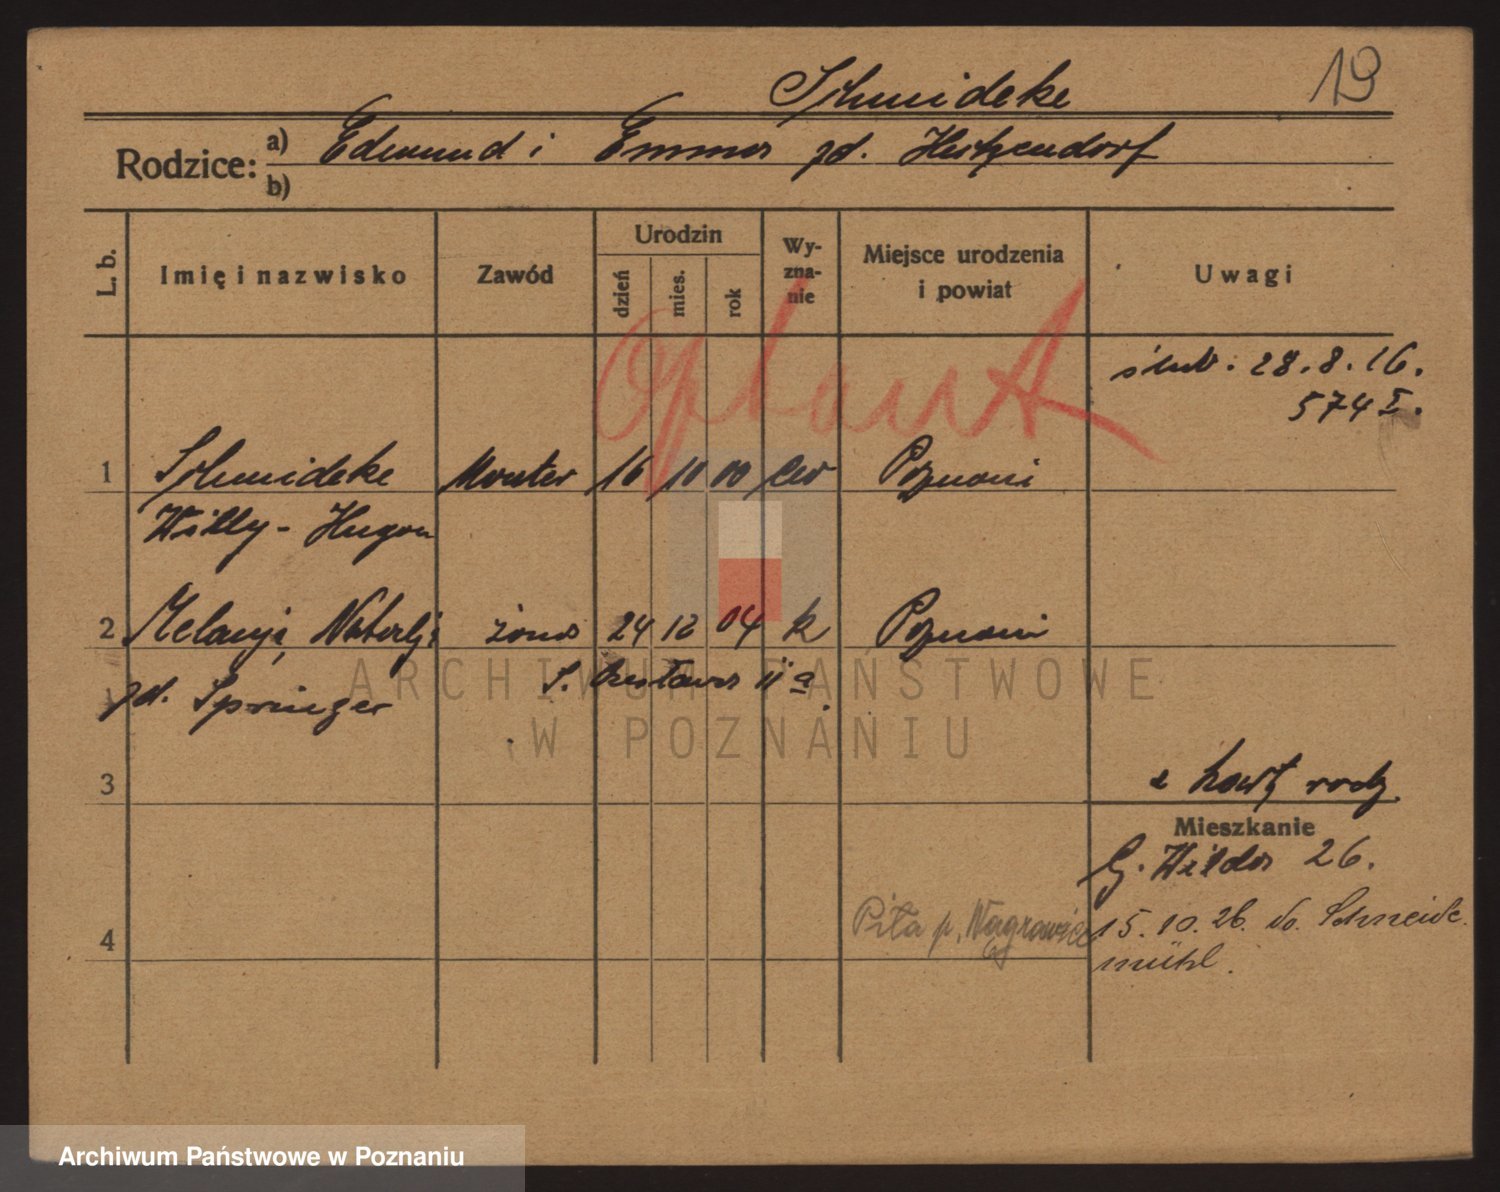 Schmideke 19
Rodzice: a) Edmund i Emma zd. Hutzendorf
b)
L. b. Imię i nazwisko Zawód Urodzin dzień mies. rok Wyznanie Miejsce urodzenia i powiat Uwagi
optant
ślub. 28.8.26.
574 I.
1 Schmideke Monter 16 10 00 ew Poznań
Willy-Hugon
2 Melanja, Natalja żona 24 12 04 k Poznań
zd. Springer
ARCHIWUM PAŃSTWOWE
W POZNANIU
3 z karty rodz.
Mieszkanie
G. Wilda 26.
4 Piła p. Wągrowiec 15.10.26. do Schneide
mühl.
Archiwum Państwowe w Poznaniu